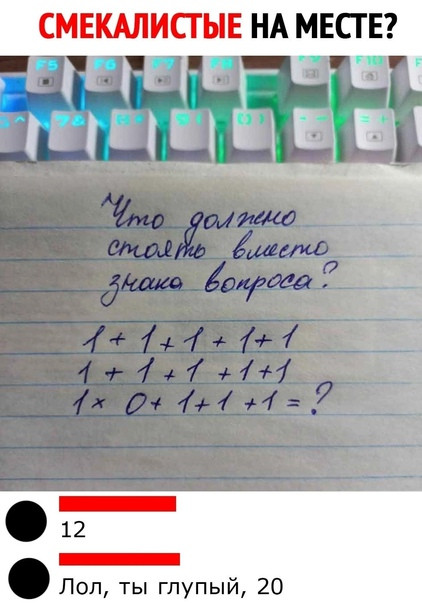 СМЕКАЛИСТЫЕ НА МЕСТЕ?
F5 F6 F7 F8 F9 F10
Что должно
стоять вместо
знака вопроса?
1 + 1 + 1 + 1 + 1
1 + 1 + 1 + 1 + 1
1 × 0 + 1 + 1 + 1 = ?
12
Лол, ты глупый, 20